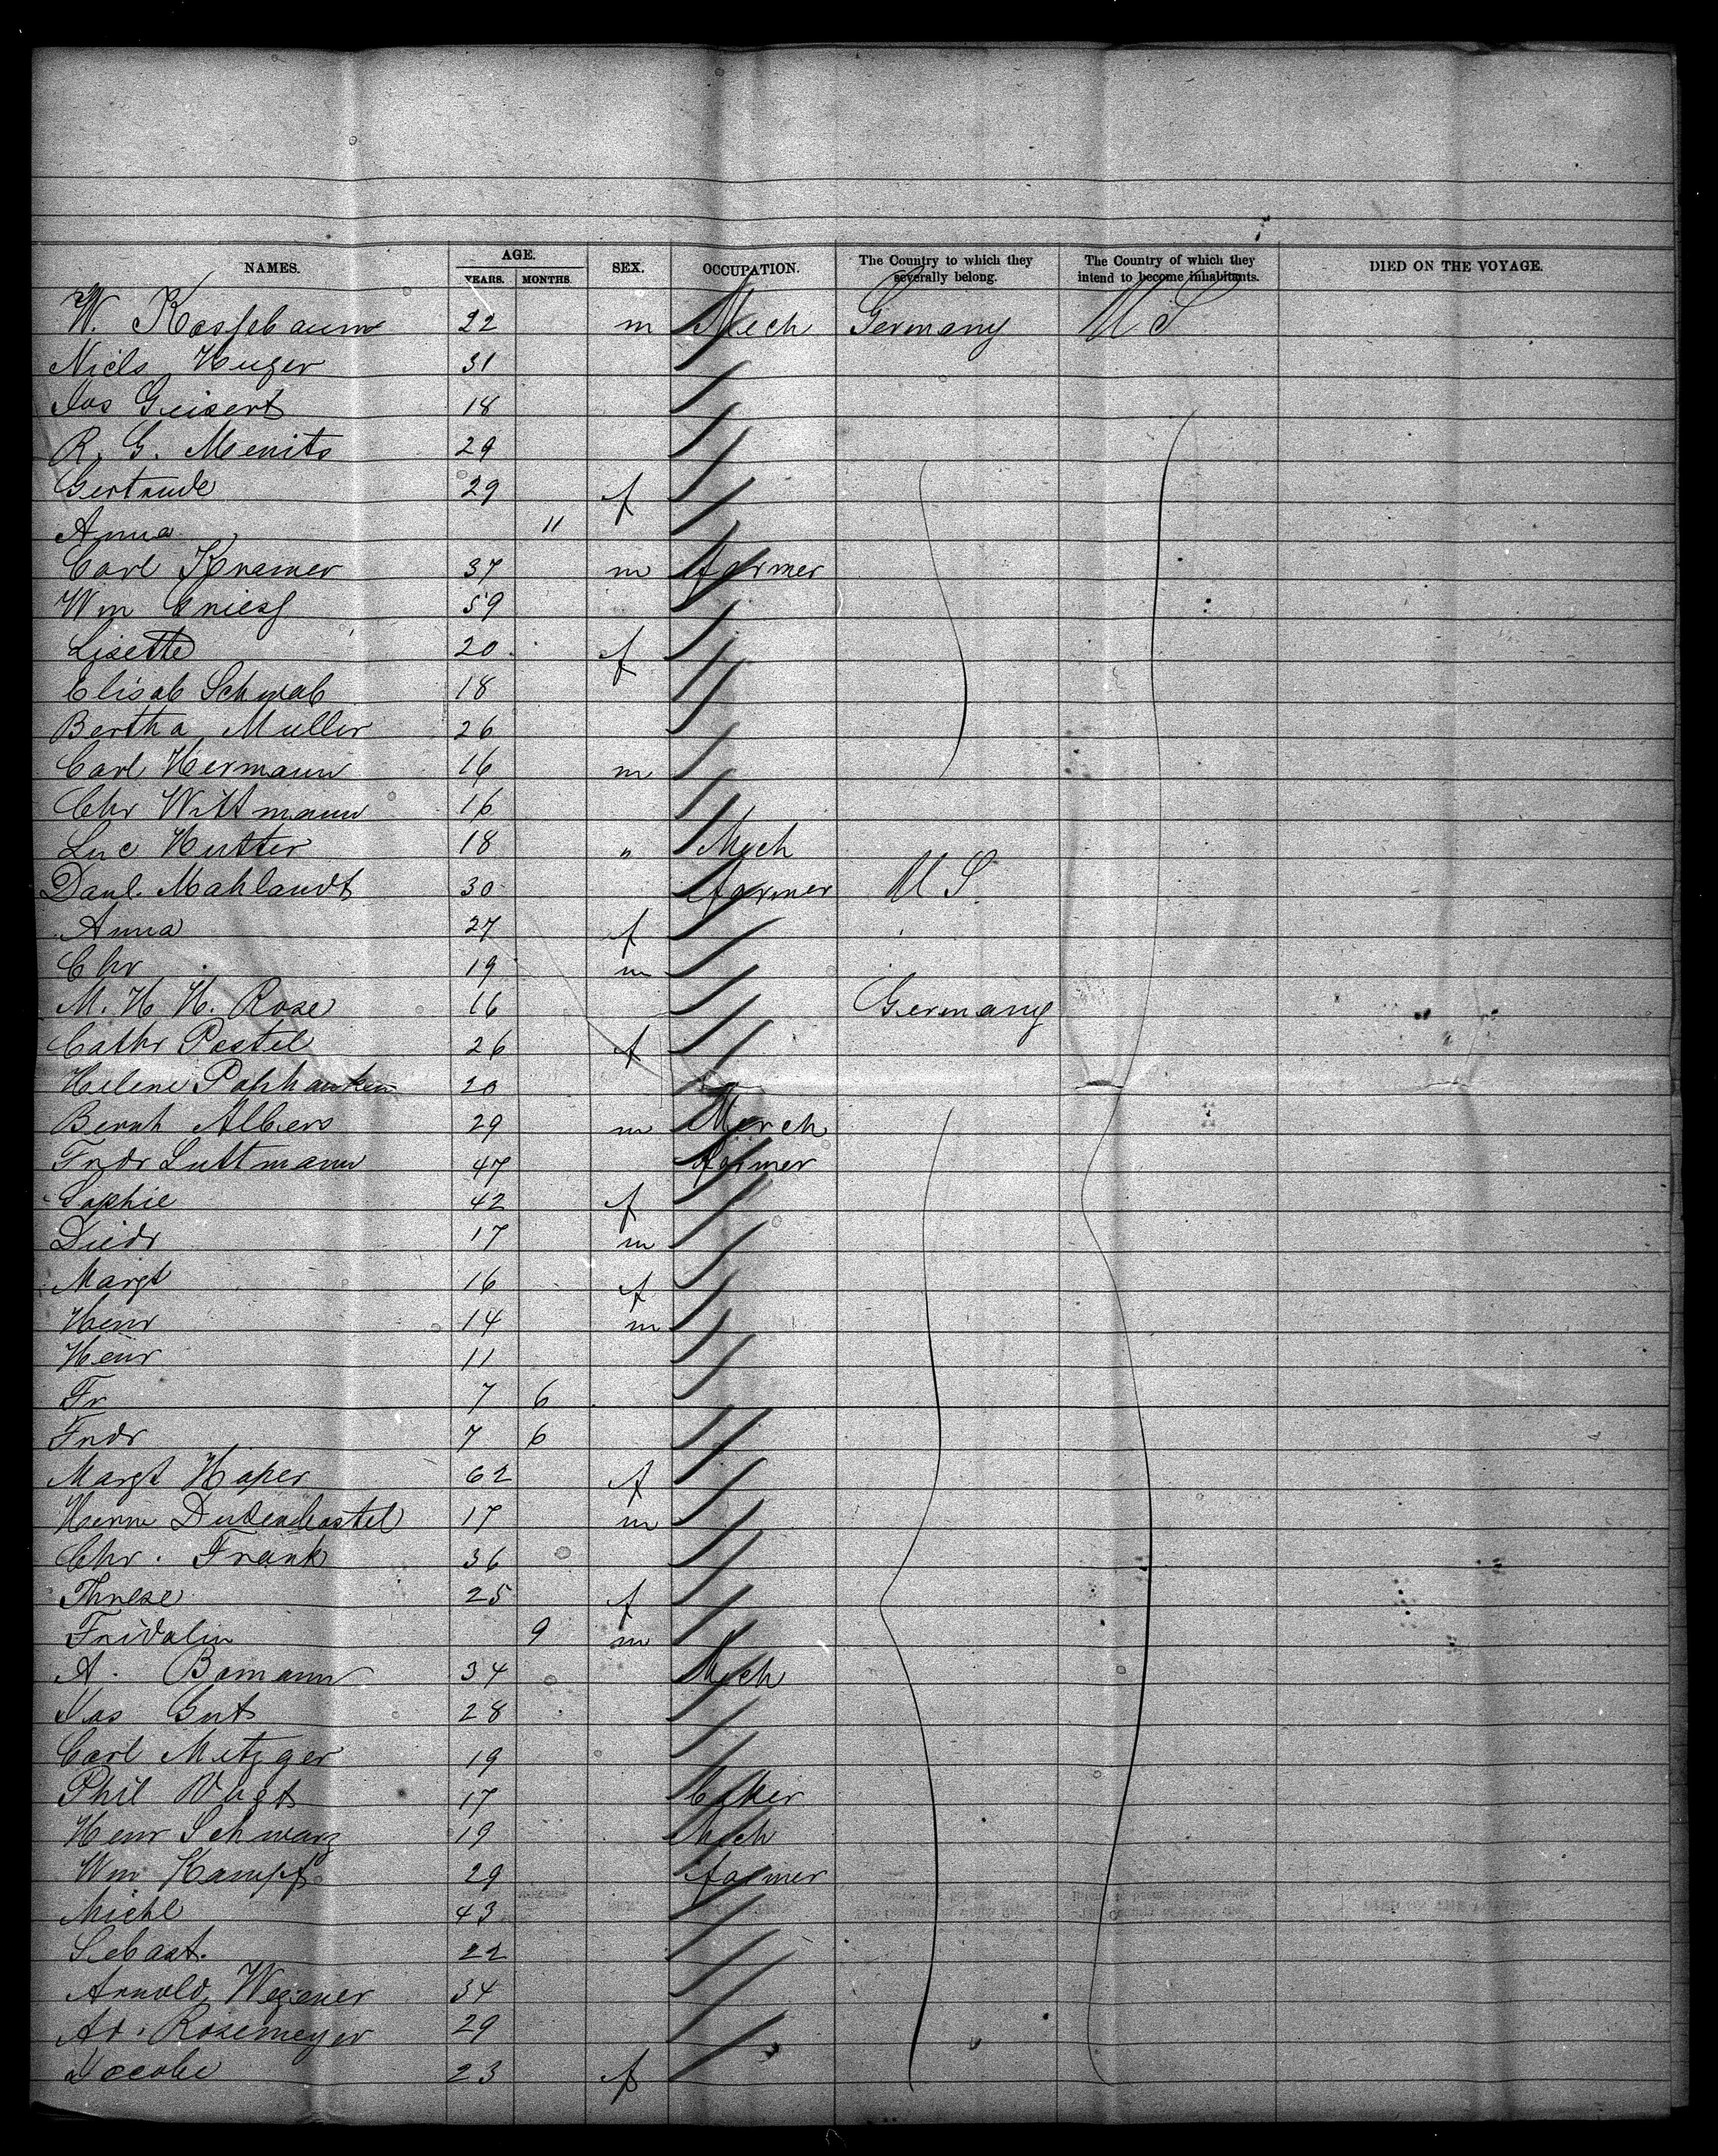 NAMES. AGE. YEARS. MONTHS. SEX. OCCUPATION. The Country to which they severally belong. The Country of which they intend to become inhabitants. DIED ON THE VOYAGE.
W. 22 m Mech Germany U S
Niels Huger 31
Jos Geisert 18
R. G. Menits 29
Gertrude 29 f
Anna 11
Carl Kramer 37 m farmer
Wm 59
Lisette 20 f
Elisab Schwab 18
Bertha Muller 26
Carl Hermann 16 m
Chr Wittmann 16
Luc Hutter 18 " Mech
Danl. Mahlandt 30 farmer U S.
Anna 27 f
Chr 19 m
M. H H. Rose 16 Germany
Cathr Postel 26 f
Helene 20
Bernh Albers 29 m Merch
Fridr Luttmann 47 farmer
Sophie 42 f
Diedr 17 m
Margt 16 f
Henr 14 m
Henr 11
Fr 7 6
Fridr 7 6
Margt Hoper 62 f
Herm Dudenbostel 17 m
Chr. Frank 36
Threse 25 f
Fridolin 9 m
A. Bamann 34 Mech
Jos 28
Carl Metzger 19
Phil Vogt 17 baker
Henr Schwarz 19 Mech
Wm Kampf 29 farmer
Michl 43
Sebast. 22
Arnold Wegener 34
Ad. Rosemeyer 29
Jacobe 23 f